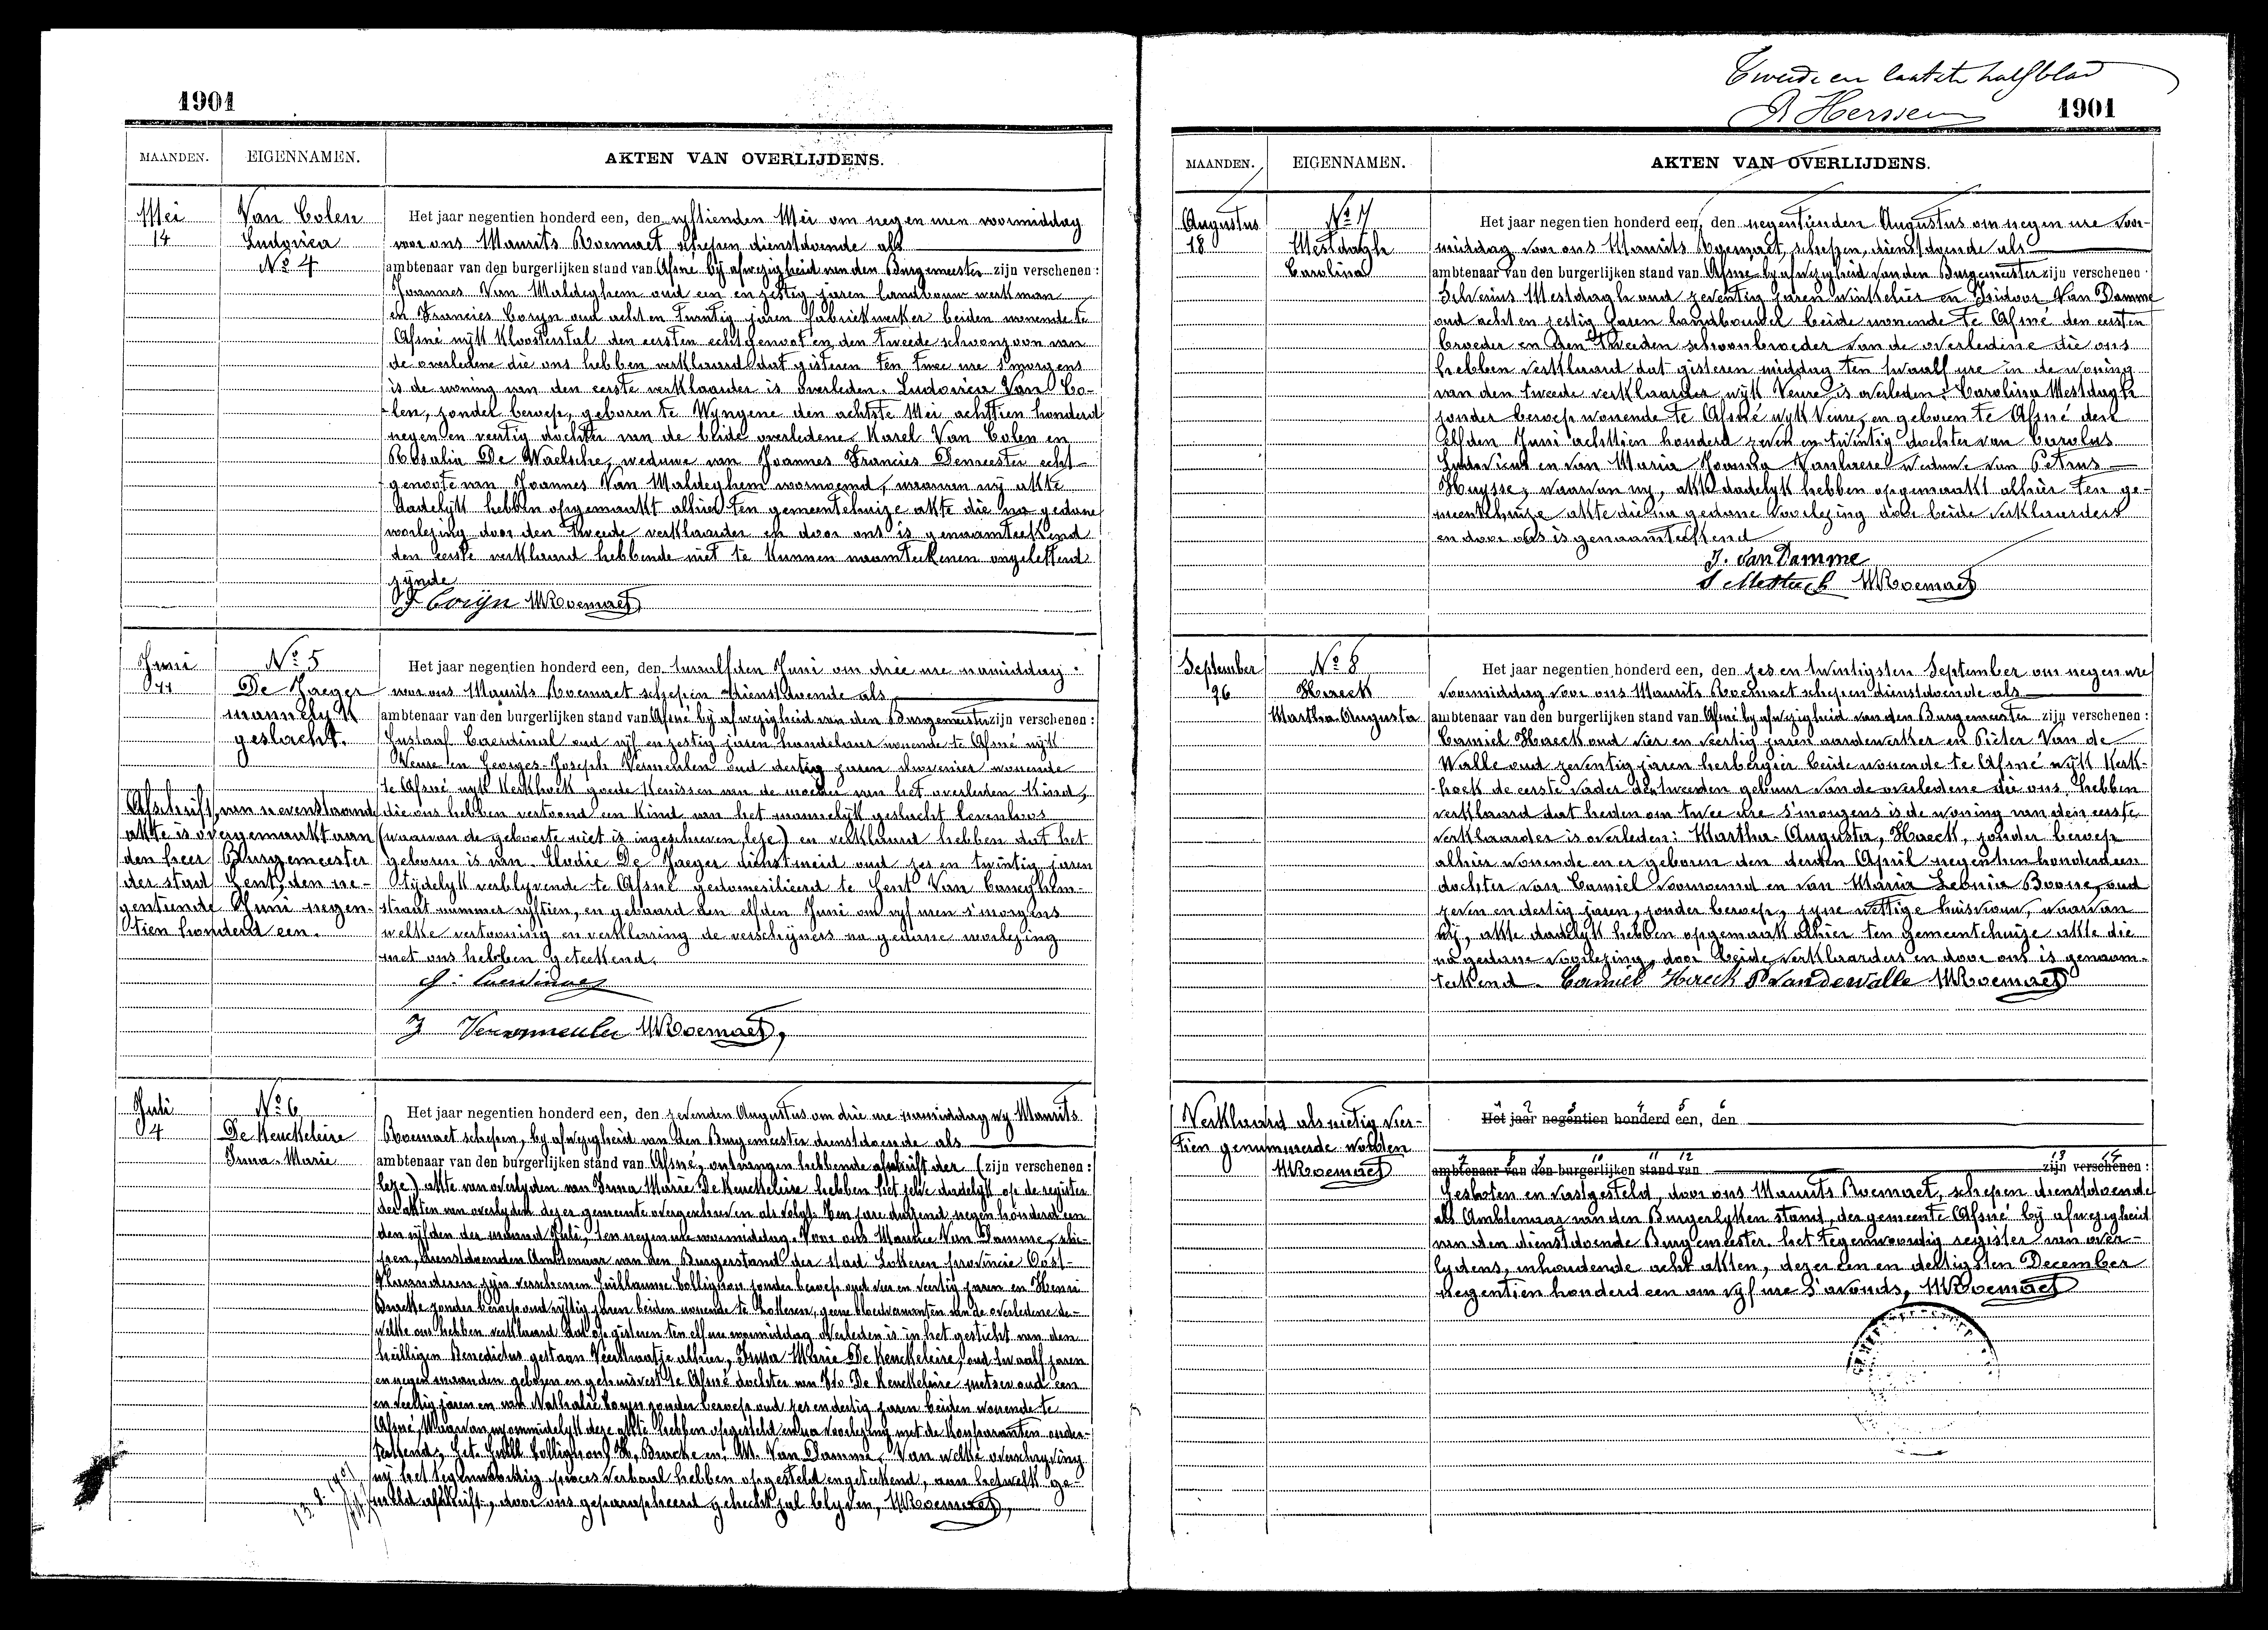 1901
MAANDEN. EIGENNAMEN. AKTEN VAN OVERLIJDENS.
Mei
14
Van Colen
Ludovica
No 4
Het jaar negentien honderd een, den vyftienden Mei om negen uren voormiddag
voor ons Maurits Roemaet schepen dienstdoende als
ambtenaar van den burgerlijken stand van Afsné bij afwezigheid van den Burgemeester zijn verschenen:
Joannes Van Maldeghem oud een en zestig jaren landbouw werkman
en Francies Coryn oud acht en twintig jaren fabriekwerker beiden wonende te
Afsné wijk Kloosterstal den eersten echtgenoot en den tweede schoonzoon van
de overledene die ons hebben verklaard dat gisteren ten twee ure s'morgens
is de woning van den eerste verklaarder is overleden: Ludovica Van Co-
len, zonder beroep, geboren te Wyngene den achtste Mei achttien honderd
negen en veertig dochter van de beide overledene Karel Van Colen en
Rosalia De Waelsche, weduwe van Joannes Francies Demeester echt-
genoote van Joannes Van Maldeghem voornoemd, waarvan wij akte
dadelyk hebben opgemaakt alhier ten gemeentehuize akte die na gedane
voorlezing door den tweede verklaarder en door ons is genaamteekend
den eerste verklaard hebbende niet te kunnen naamteekenen ongeletterd
zijnde
F Corijn MRoemaet
Juni
11
No 5
De Jaeger
mannelyk
geslacht.
Het jaar negentien honderd een, den twaalfden Juni om drie ure namiddag
voor ons Maurits Roemaet schepen dienstdoende als
ambtenaar van den burgerlijken stand van Afsné bij afwezigheid van den Burgemeester zijn verschenen:
Gustaaf Caerdinal oud vijf en zestig jaren handelaar wonende te Afsné wijk
Veure en Georges-Joseph Vermeulen oud dertig jaren hovenier wonende
te Afsné wyk Kerkhoek goede kenissen van de moeder van het overleden kind,
die ons hebben vertoond een kind van het mannelyk geslacht levenloos
(waarvan de geboorte niet is ingeschreven, leze) en verklaard hebben dat het
geboren is van Elodie De Jaeger dienstmeid oud zes en twintig jaren
tijdelyk verblyvende te Afsné gedomesilieerd te Gent Van Caneghem-
straat nummer vyftien, en gebaard den elfden Juni om vyf uren s'morgens
welke vertooning en verklaring de verschijners na gedane voorlezing
met ons hebben geteekend.
Afschrift van nevenstaande
akte is overgemaakt aan
den heer Burgemeester
der stad Gent, den ne-
gentiende Juni negen-
tien honderd een.
G. Caerdinael
J Vermeulen MRoemaet,
Juli
4
No 6
De Keuckeleire
Irma-Marie
Het jaar negentien honderd een, den zevenden Augustus om drie ure namiddag wy Maurits
Roemaet schepen, by afwezigheid van den Burgemeester dienstdoende als
ambtenaar van den burgerlijken stand van Afsné, ontvangen hebbende afschrift der (zijn verschenen:
leze) akte van overlyden van Irma Marie De Keuckeleire hebben het zelve dadelyk op de register
der akten van overlyden dezer gemeente overgeschreven als volgt: Een jare duizend negen honderd een
den vijfden der maand Juli, ten negen ure voormiddag. Voor ons Maurice Van Damme, sche-
pen, dienstdoenden Ambtenaar van den Burgerstand der stad Lokeren provincie Oost-
Vlaanderen zijn verschenen Guillaume Collignon zonder beroep oud vier en veertig jaren en Henri
Burcke zonder beroep oud vijftig jaren beiden wonende te Lokeren, geene bloedvanaten van de overledene de-
welke ons hebben verklaard dat op gisteren ten elf ure voormiddag overleden is in het gesticht van den
heilligen Benedictus gestaan Veerstraatje alhier, Irma Marie De Keuckeleire, oud twaalf jaren
en negen maanden geboren en gehuisvest te Afsné dochter van Ivo De Keuckeleire metser oud een
en veertig jaren en van Nathalie Coryn zonder beroep oud zes en dertig jaren beiden wonende te
Afsné, Waarvan wy onmiddelyk deze akte hebben opgesteld en na voorlezing met de komparanten onder-
teekend. Get. Guill. Collignon, H. Burcke en M. Van Damme. Van welke overschryving
wy het tegenwoordig proces verbaal hebben opgesteld en geteekend, aan hetwelk ge-
meld afschrift, door ons geparapheerd gehecht zal blyven, MRoemaet,
Tweede en laatste halfblad
R Herssen
1901
MAANDEN. EIGENNAMEN. AKTEN VAN OVERLIJDENS.
Augustus
18
No 7
Mestdagh
Carolina
Het jaar negentien honderd een, den negentienden Augustus om negen ure voor-
middag voor ons Maurits Roemaet, schepen, dienstdoende als
ambtenaar van den burgerlijken stand van Afsné by afwezigheid van den Burgemeester zijn verschenen
Seherius Mestdagh oud zeventig jaren winkelier en Isidoor Van Damme
oud acht en zestig jaren landbouwer beide wonende te Afsné den eersten
broeder en den tweeden schoonbroeder van de overledene die ons
hebben verklaard dat gisteren middag ten twaalf ure in de woning
van den tweede verklaarder wyk Veure is overleden: Carolina Mestdagh
zonder beroep wonende te Afsné wyk Veure, en geboren te Afsné den
Elfden Juni achttien honderd zeven en twintig dochter van Carolus
Ludovicus en van Maria Joanna Vanhaese weduwe van Petrus
Huysse, waarvan wy, akte dadelyk hebben opgemaakt alhier ten ge-
meentehuize akte die na gedane voorlezing door beide verklaarders
en door ons is genaamteekend
J. Van Damme
S Mestdach MRoemaet
September
26
No 8
Haeck
Martha Augusta
Het jaar negentien honderd een, den zes en twintigsten September om negen ure
voormiddag voor ons Maurits Roemaet schepen dienstdoende als
ambtenaar van den burgerlijken stand van Afsné by afwezigheid van den Burgemeester zijn verschenen:
Camiel Haeck oud vier en veertig jaren aardewerker en Pieter Van de
Walle oud zeventig jaren herbergier beide wonende te Afsné wijk Kerk-
hoek de eerste vader den tweeden gebuur van de overledene die ons hebben
verklaard dat heden om twee ure s'morgens is de woning van den eerste
verklaarder is overleden: Martha-Augusta, Haeck, zonder beroep
alhier wonende en er geboren den derden April negentien honderd een
dochter van Camiel voornoemd en van Maria Leonia Boone, oud
zeven en dertig jaren, zonder beroep, zyne wettige huisvrouw, waarvan
wij, akte dadelyk hebben opgemaakt alhier ten gemeentehuize akte die
na gedane voorlezing, door beide verklaarders en door ons is genaam-
teekend. Camiel Haeck P Vandewalle MRoemaet
Verklaard als nietig vier-
tien genummerde woorden
MRoemaet
1 2 3 4 5 6
Het jaar negentien honderd een, den
7 8 9 10 11 12 13 14
ambtenaar van den burgerlijken stand van zijn verschenen:
Gesloten en vastgesteld, door ons Maurits Roemaet, schepen dienstdoende
als Ambtenaar van den Burgerlyken stand, der gemeente Afsné bij afwezigheid
van den dienstdoende Burgemeester het tegenwoordig register van over-
lydens, inhoudende acht akten, dezer een en dertigsten December
negentien honderd een om vyf ure s'avonds, MRoemaet